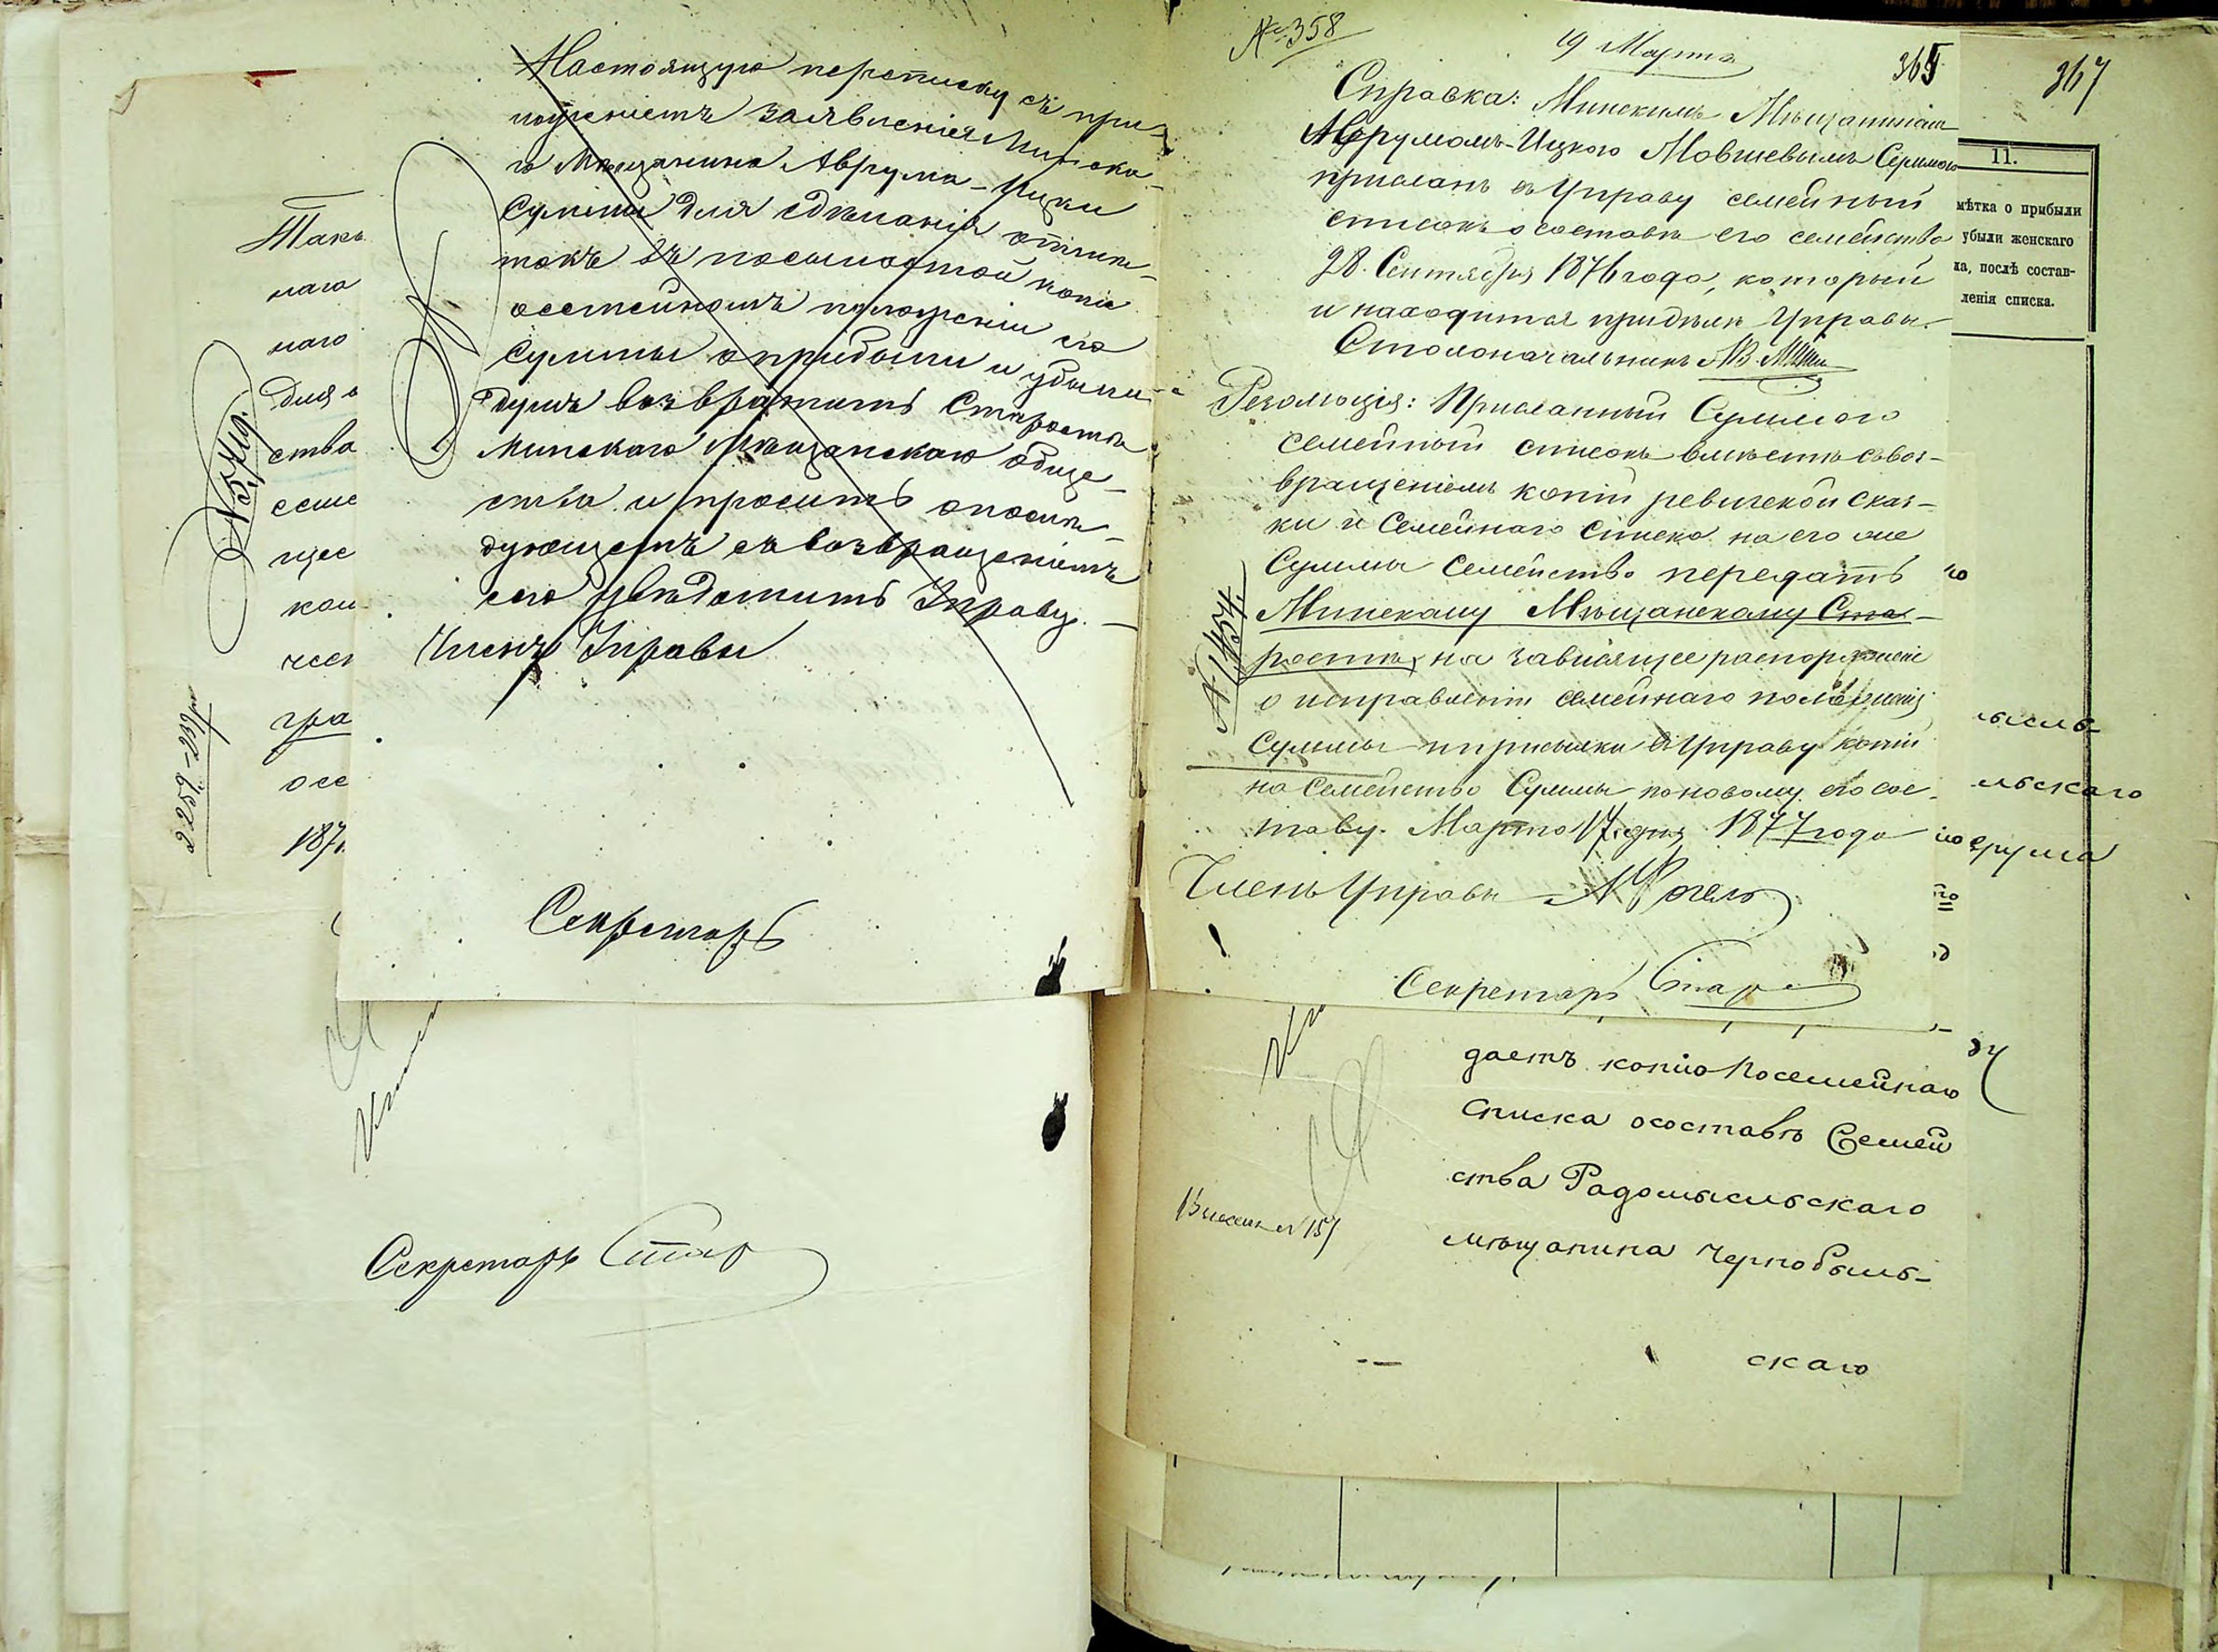 Настоящую переписку съ при-
ложеніемъ заявленія Минска-
го Мѣщанина Аврума-Ицки
Сулимы для сдѣланія отмѣ-
токъ въ посылаемой копіи
о семейномъ положеніи его
Сулимы о прибыли и убыли
душъ возвратить Старостѣ
Минскаго Мѣщанскаго обще-
ства и просить о послѣ-
дующемъ съ возвращеніемъ
сего увѣдомить Управу.
Членъ Управы
Секретарь
Такъ
наго
наго
для
ства
семе
щес
кои
чест
гра
осе
187
№ 5410.
Секретарь
№ 358
19 Марта
365
Справка: Минскимъ Мѣщаниномъ
Аврумомъ-Ицкою Мовшевымъ Сулимою
присланъ въ Управу семейный
списокъ о составѣ его семейства
28 Сентября 1876 года, который
и находится при дѣлѣ Управы.
Столоначальникъ
Резолюція: Присланный Сулимою
семейный списокъ вмѣстѣ съ воз-
вращеніемъ копіи ревизской сказ-
ки и Семейнаго списка на его же
Сулимы Семейство передать
Минскому Мѣщанскому Ста-
ростѣ, на зависящее распоряженіе
о исправленіи семейнаго положенія
Сулимы и присылки въ Управу копіи
на Семейство Сулимы по новому его сос-
таву. Марта 17 дня 1877 года
Членъ Управы
Секретарь
№ 1434.
367
11.
мѣтка о прибыли
убыли женскаго
ла, послѣ состав-
ленія списка.
го
ысль-
льскаго
друма
даетъ копію посемейнаго
списка о составѣ Семей
ства Радомысльскаго
мѣщанина Чернобыль-
скаго